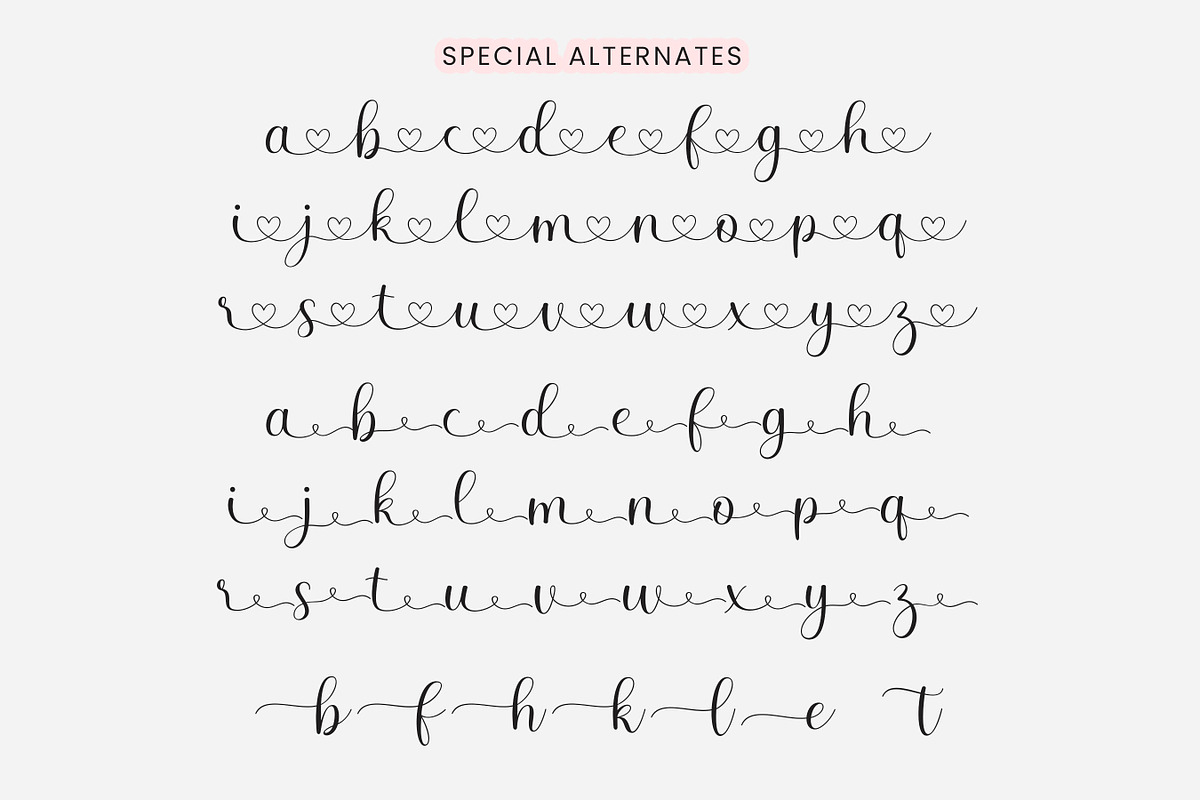 SPECIAL ALTERNATES
a b c d e f g h
i j k l m n o p q
r s t u v w x y z
a b c d e f g h
i j k l m n o p q
r s t u v w x y z
b f h k l e t